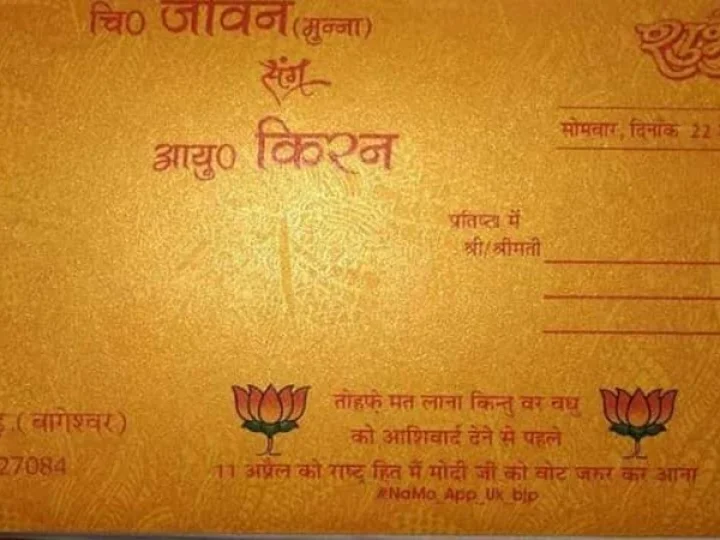 चि० जीवन (मुन्ना)
संग
आयु० किरन
शुभ
सोमवार, दिनांक 22
प्रतिष्ठा में
श्री/श्रीमती
(बागेश्वर)
27084
तोहफे मत लाना किन्तु वर वधु
को आशिवार्द देने से पहले
11 अप्रैल को राष्ट्र हित में मोदी जी को वोट जरुर कर आना
#NaMo_App_Uk_bjp